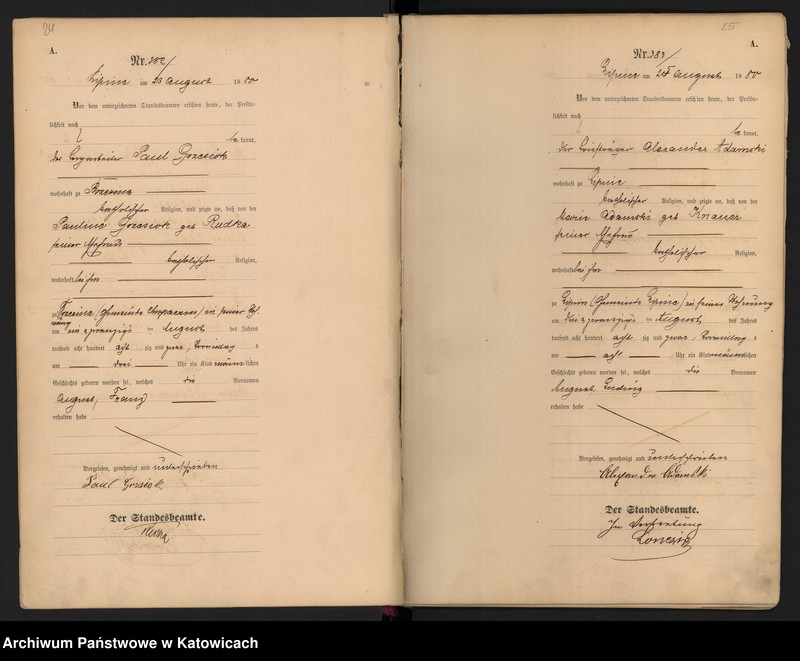 24
A.
Nr. 382
Lipine am 23 August 18 80
Vor dem unterzeichneten Standesbeamten erschien heute, der Persön-
lichkeit nach
be kannt,
der Paul Grzesiok
wohnhaft zu
katholischer Religion, und zeigte an, daß von der
Pauline Grzesiok geb Rudka
seiner Ehefrau
katholischer Religion,
wohnhaft bei ihm
zu (Gemeinde ) in seiner
am ein zwanzigs ten August des Jahres
tausend acht hundert acht zig und zwar Vormittag s
um drei Uhr ein Kind männlichen
Geschlechts geboren worden sei, welches die Vornamen
August, Franz
erhalten habe
Vorgelesen, genehmigt und unterschrieben
Paul
Der Standesbeamte.
25
A.
Nr. 383
Lipine am August 18 80
Vor dem unterzeichneten Standesbeamten erschien heute, der Persön-
lichkeit nach
be kannt,
der Alexander Adamski
wohnhaft zu Lipine
katholischer Religion, und zeigte an, daß von der
Marie Adamski geb Knauer
seiner Ehefrau
katholischer Religion,
wohnhaft bei ihm
zu Lipine (Gemeinde Lipine) in seiner Wohnung
am zwanzigs ten August des Jahres
tausend acht hundert acht zig und zwar Vormittag s
um acht Uhr ein Kind männlichen
Geschlechts geboren worden sei, welches die Vornamen
August, Ludwig
erhalten habe
Vorgelesen, genehmigt und unterschrieben
Alexander Adamski
Der Standesbeamte.
In Vertretung
Archiwum Państwowe w Katowicach